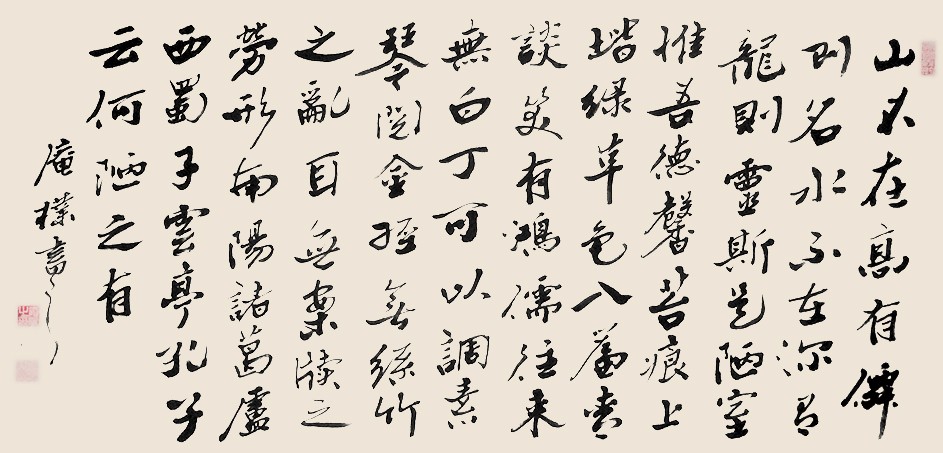 山不在高有僊
則名水不在深有
龍則靈斯是陋室
惟吾德馨苔痕上
堦綠草色入簾青
談笑有鴻儒往來
無白丁可以調素
琴閱金經無絲竹
之亂耳無案牘之
勞形南陽諸葛廬
西蜀子雲亭孔子
云何陋之有
庵樸書